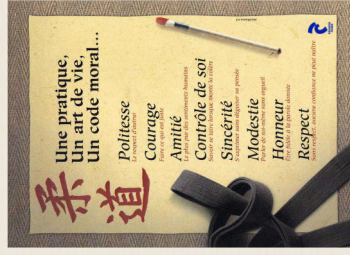 柔道
Une pratique,
Un art de vie,
Un code moral...
Politesse
Le respect d'autrui
Courage
Faire ce qui est juste
Amitié
Le plus pur des sentiments humains
Contrôle de soi
Savoir se taire lorsque monte la colère
Sincérité
S'exprimer sans déguiser sa pensée
Modestie
Parler de soi-même sans orgueil
Honneur
Être fidèle à la parole donnée
Respect
Sans respect, aucune confiance ne peut naître